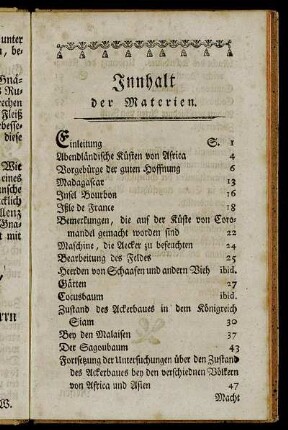 unter
n, be-
Gnä-
s Ru-
rechen
Fleiß
besse-
diese
Wie
eines
unsche
rcklich
llenz
Gna-
t mit
rrn
W.
Innhalt
der Materien.
Einleitung S. 1
Abendländische Küsten von Africa 4
Vorgebürge der guten Hoffnung 6
Madagascar 13
Insel Bourbon 16
Isle de France 18
Bemerkungen, die auf der Küste von Coro-
mandel gemacht worden sind 22
Maschine, die Aecker zu befeuchten 24
Bearbeitung des Feldes 25
Heerden von Schaafen und andern Vieh ibid.
Gärten 27
Cocusbaum ibid.
Zustand des Ackerbaues in dem Königreich
Siam 30
Bey den Malaisen 37
Der Sagoubaum 43
Fortsetzung der Untersuchungen über den Zustand
des Ackerbaues bey den verschiednen Völkern
von Africa und Asien 47
Macht